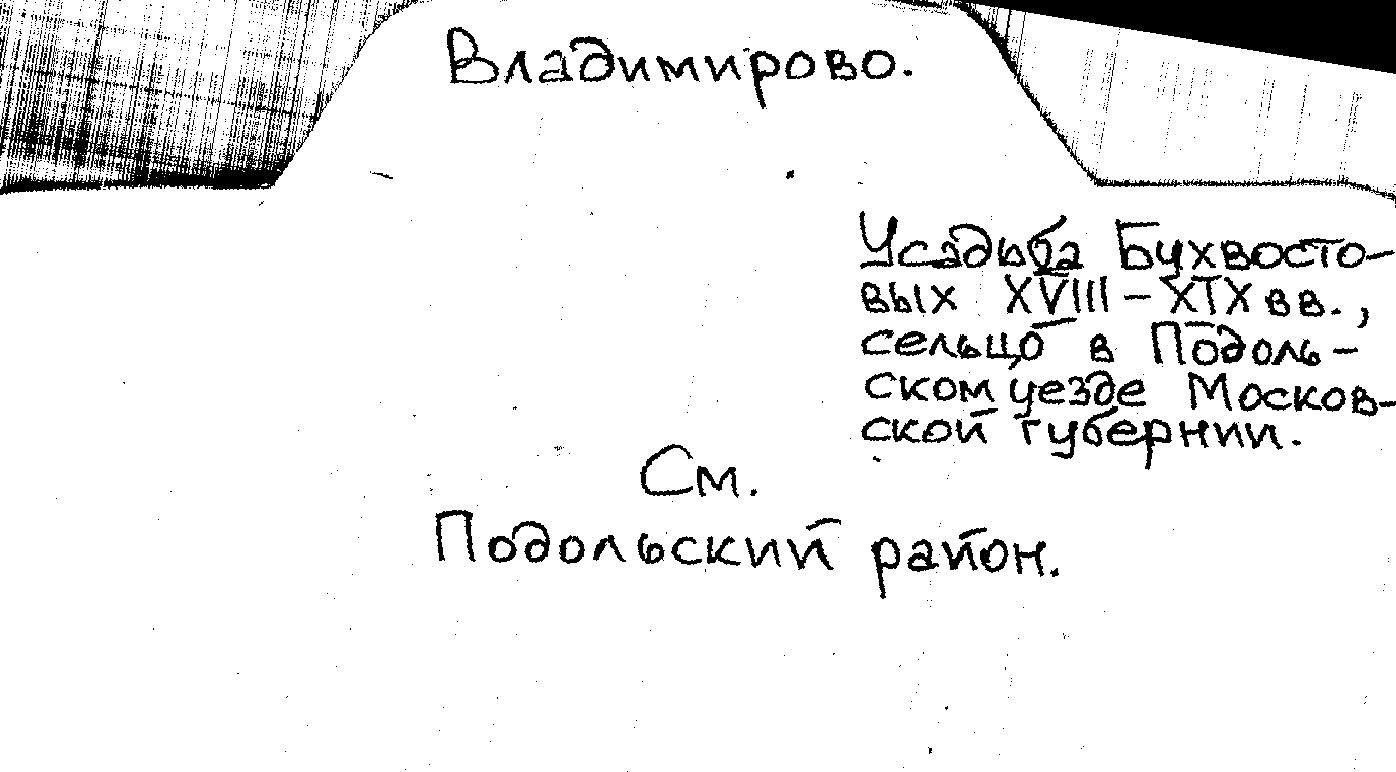 Владимирово.
Усадьба Бухвосто-
вых XVIII – XIX вв.,
сельцо в Подоль-
ском уезде Москов-
ской губернии.
См.
Подольский район.